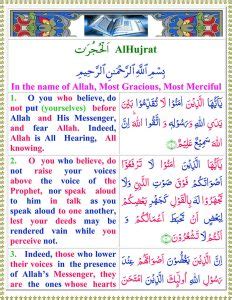 اَلْحُجُرٰت AlHujrat
بِسْمِ اللّٰهِ الرَّحْمٰنِ الرَّحِيْمِ
In the name of Allah, Most Gracious, Most Merciful
1. O you who believe, do
not put (yourselves) before
Allah and His Messenger,
and fear Allah. Indeed,
Allah is All Hearing, All
knowing.
يٰۤاَيُّهَا الَّذِيْنَ اٰمَنُوْا لَا تُقَدِّمُوْا بَيْنَ
يَدَيِ اللّٰهِ وَرَسُوْلِهٖ وَاتَّقُوا اللّٰهَ ؕ اِنَّ اللّٰهَ
سَمِيْعٌ عَلِيْمٌ
2. O you who believe, do
not raise your voices
above the voice of the
Prophet, nor speak aloud
to him in talk as you
speak aloud to one another,
lest your deeds may be
rendered vain while you
perceive not.
يٰۤاَيُّهَا الَّذِيْنَ اٰمَنُوْا لَا تَرْفَعُوْۤا
اَصْوَاتَكُمْ فَوْقَ صَوْتِ النَّبِيِّ وَلَا
تَجْهَرُوْا لَهٗ بِالْقَوْلِ كَجَهْرِ بَعْضِكُمْ
لِبَعْضٍ اَنْ تَحْبَطَ اَعْمَالُكُمْ وَ
اَنْتُمْ لَا تَشْعُرُوْنَ
3. Indeed, those who lower
their voices in the presence
of Allah's Messenger, they
are the ones whose hearts
اِنَّ الَّذِيْنَ يَغُضُّوْنَ اَصْوَاتَهُمْ عِنْدَ
رَسُوْلِ اللّٰهِ اُولٰٓئِكَ الَّذِيْنَ